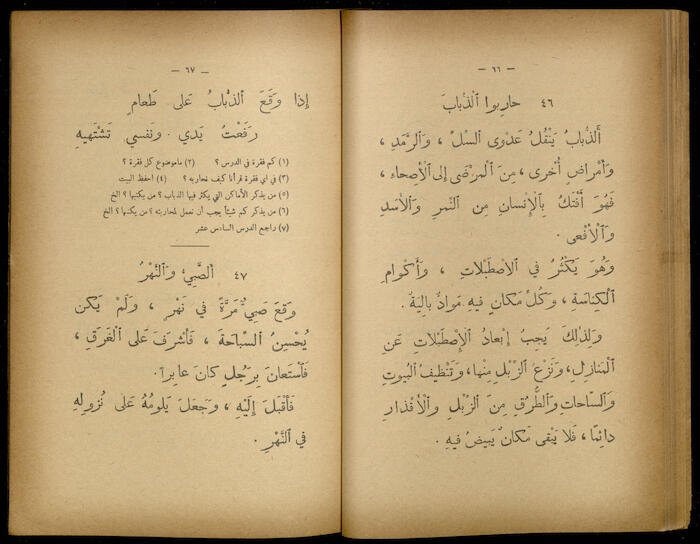 — ٦٦ —
٤٦ حاربوا ٱلذُّبابَ
أَلذُّبابُ يَنْقُلُ عَدْوَى السِّلِّ ، وَالرَّمَدِ ،
وَأَمْراضٍ أُخْرَى ، مِنَ ٱلْمَرْضَى إِلَى ٱلْأَصِحَّاءِ ،
فَهُوَ أَفْتَكُ بِٱلْإِنْسانِ مِنَ النَّمِرِ وَٱلْأَسَدِ
وَٱلْأَفْعَى .
وَهُوَ يَكْثُرُ فِي ٱلْاصْطَبْلاتِ ، وَأَكْوامِ
ٱلْكِنَاسَةِ ، وَكُلِّ مَكَانٍ فِيهِ مَوادُّ بالِيَةٌ .
وَلِذٰلِكَ يَجِبُ إِبْعادُ ٱلْإِصْطَبْلاتِ عَنِ
ٱلْمَنازِلِ، وَنَزْعُ الزِّبْلِ مِنْها، وَتَنْظِيفُ ٱلْبُيُوتِ
وَالسَّاحَاتِ وَالطُّرُقِ مِنَ الزِّبْلِ وَٱلْأَقْذَارِ
دائِمًا ، فَلَا يَبْقَى مَكانٌ يَبِيضُ فِيهِ .
— ٦٧ —
إِذا وَقَعَ الذُّبابُ عَلَى طَعَامٍ
رَفَعْتُ يَدِي . وَنَفْسِي تَشْتَهِيهِ
(١) كم فقرة في الدرس ؟ (٢) ماموضوع كل فقرة ؟
(٣) في اي فقرة قرأنا كيف نحاربه ؟ (٤) احفظ البيت
(٥) من يذكر الأماكن التي يكثر فيها الذباب ؟ من يكتبها ؟ الخ
(٦) من يذكر كم شيئاً يجب أن نعمل لمحاربته ؟ من يكتبها ؟ الخ
(٧) راجع الدرس السادس عشر
٤٧ الصَّبِيُّ وَالنَّهْرُ
وَقَعَ صَبِيٌّ مَرَّةً فِي نَهْرٍ ، وَلَمْ يَكُن
يُحْسِنُ السِّبَاحَةَ ، فَأَشْرَفَ عَلَى ٱلْغَرَقِ ،
فَٱسْتَعَانَ بِرَجُلٍ كانَ عابِراً.
فَأَقْبَلَ إِلَيْهِ ، وَجَعَلَ يَلُومُهُ عَلَى نُزُولِهِ
فِي النَّهْرِ .